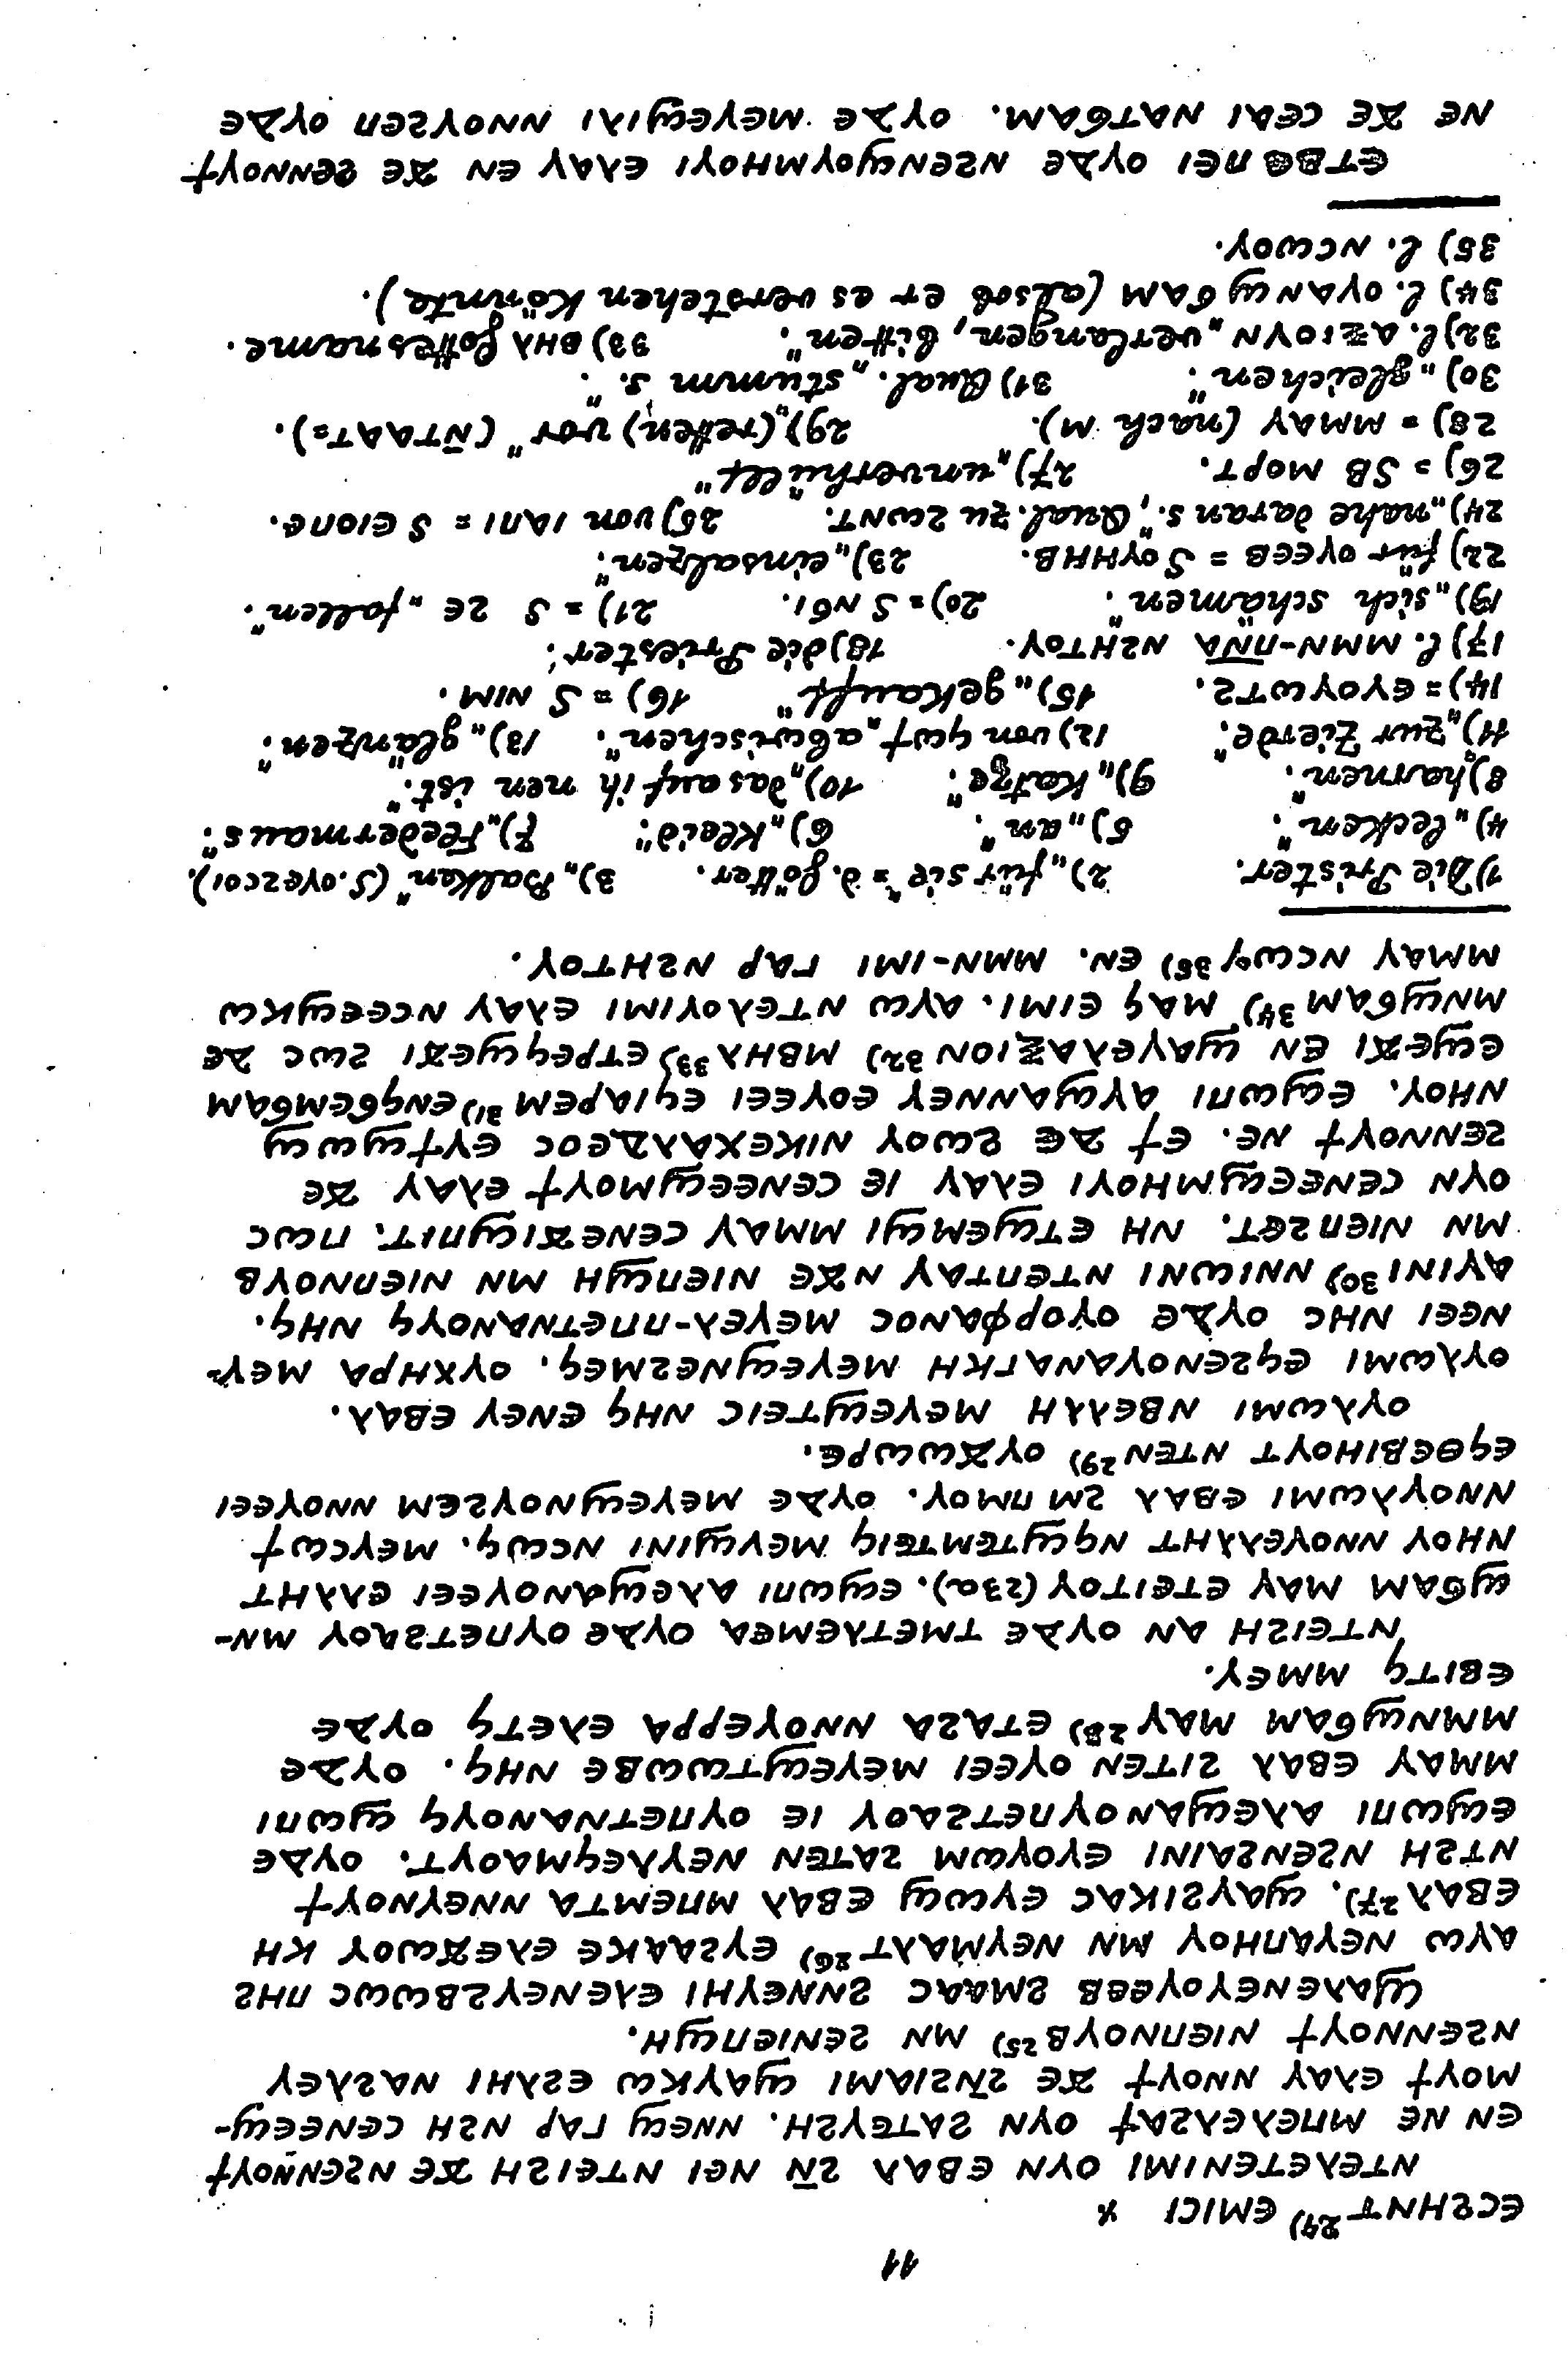 11
ⲉⲥϩⲏⲛⲧ 24) ⲉⲙⲓⲥⲓ *
ⲛⲧⲉⲗⲉⲧⲉⲛⲓⲙⲓ ⲟⲩⲛ ⲉⲃⲁⲗ ϩⲛ̄ ⲛⲉⲓ ⲛⲧⲉⲓϩⲏ ϫⲉ ⲛϩⲉⲛⲛⲟⲩϯ
ⲉⲛ ⲛⲉ ⲙⲡⲉⲗⲉⲗϩⲁϯ ⲟⲩⲛ ϩⲁⲧⲉⲩϩⲏ. ⲛⲛⲉϣ ⲅⲁⲣ ⲛϩⲏ ⲥⲉⲛⲉⲉϣ-
ⲙⲟⲩϯ ⲉⲗⲁⲩ ⲛⲛⲟⲩϯ ϫⲉ ϩⲛ̄ϩⲓⲁⲙⲓ ϣⲁⲩⲕⲱ ⲉϩⲗⲏⲓ ⲛⲁϩⲗⲉⲩ
ⲛϩⲉⲛⲛⲟⲩϯ ⲛⲓⲉⲡⲛⲟⲩⲃ 25) ⲙⲛ ϩⲉⲛⲓⲉⲡϣⲏ.
ϣⲁⲗⲉⲛⲉⲩⲟⲩⲉⲉⲃ ϩⲙⲁⲁⲥ ϩⲛⲛⲉⲩⲏⲓ ⲉⲗⲉⲛⲉⲩϩⲃⲱⲱⲥ ⲡⲏϩ
ⲁⲩⲱ ⲛⲉⲩⲁⲡⲏⲟⲩ ⲙⲛ ⲛⲉⲩⲙⲁⲗⲧ 26) ⲉⲩϩⲁⲁⲕⲉ ⲉⲗⲉϫⲱⲟⲩ ⲕⲏ
ⲉⲃⲁⲗ 27). ϣⲁⲩϩⲓⲕⲁⲥ ⲉⲩⲱϣ ⲉⲃⲁⲗ ⲙⲡⲉⲙⲧⲁ ⲛⲛⲉⲩⲛⲟⲩϯ
ⲛⲧϩⲏ ⲛϩⲉⲛϩⲁⲓⲛⲓ ⲉⲩⲟⲩⲱⲙ ϩⲁⲧⲉⲛ ⲛⲉⲩⲗⲉϥⲙⲁⲟⲩⲧ. ⲟⲩⲇⲉ
ⲉϣⲱⲡⲓ ⲁⲗⲉϣⲁⲛⲟⲩⲡⲉⲧϩⲁⲟⲩ ⲓⲉ ⲟⲩⲡⲉⲧⲛⲁⲛⲟⲩϥ ϣⲱⲡⲓ
ⲙⲙⲁⲩ ⲉⲃⲁⲗ ϩⲓⲧⲉⲛ ⲟⲩⲉⲉⲓ ⲙⲉⲩⲉϣⲧⲱⲱⲃⲉ ⲛⲏϥ. ⲟⲩⲇⲉ
ⲙⲙⲛϣϭⲁⲙ ⲙⲁⲩ 28) ⲉⲧⲁϩⲁ ⲛⲛⲟⲩⲉⲣⲣⲁ ⲉⲗⲉⲧϥ ⲟⲩⲇⲉ
ⲉⲃⲓⲧϥ ⲙⲙⲉⲩ.
ⲛⲧⲉⲓϩⲏ ⲁⲛ ⲟⲩⲇⲉ ⲧⲙⲉⲧⲗⲉⲙⲉⲁ ⲟⲩⲇⲉ ⲟⲩⲡⲉⲧϩⲁⲟⲩ ⲙⲛ-
ϣϭⲁⲙ ⲙⲁⲩ ⲉⲧⲉⲓⲧⲟⲩ (23a). ⲉϣⲱⲡⲓ ⲁⲗⲉϣⲁⲛⲟⲩⲉⲉⲓ ⲉⲗⲏⲧ
ⲛⲏⲟⲩ ⲛⲛⲟⲩⲉⲗⲏⲧ ⲛϥϣⲧⲉⲙⲧⲉⲓϥ ⲙⲉⲩϣⲓⲛⲓ ⲛⲥⲱϥ. ⲙⲉⲩⲥⲱϯ
ⲛⲛⲟⲩⲗⲱⲙⲓ ⲉⲃⲁⲗ ϩⲙ ⲡⲙⲟⲩ. ⲟⲩⲇⲉ ⲙⲉⲩⲉϣⲛⲟⲩϩⲉⲙ ⲛⲛⲟⲩⲉⲉⲓ
ⲉϥⲑⲉⲃⲓⲏⲟⲩⲧ ⲛⲧⲉⲛ 29) ⲟⲩϫⲱⲱⲣⲉ.
ⲟⲩⲗⲱⲙⲓ ⲛⲃⲉⲗⲗⲏ ⲙⲉⲩⲉϣⲧⲉⲓⲥ ⲛⲏϥ ⲉⲛⲉⲩ ⲉⲃⲁⲗ.
ⲟⲩⲗⲱⲙⲓ ⲉϥϩⲉⲛⲟⲩⲁⲛⲁⲅⲕⲏ ⲙⲉⲩⲉϣⲛⲉϩⲙⲉϥ. ⲟⲩⲭⲏⲣⲁ ⲙⲉⲩ-
ⲛⲉⲉⲓ ⲛⲏⲥ ⲟⲩⲇⲉ ⲟⲩⲟⲣⲫⲁⲛⲟⲥ ⲙⲉⲩⲉⲗ-ⲡⲡⲉⲧⲛⲁⲛⲟⲩϥ ⲛⲏϥ.
ⲁⲩⲓⲛⲓ 30) ⲛⲛⲓⲱⲛⲓ ⲛⲧⲉⲡⲧⲁⲩ ⲛϫⲉ ⲛⲓⲉⲡϣⲏ ⲙⲛ ⲛⲓⲉⲡⲛⲟⲩⲃ
ⲙⲛ ⲛⲓⲉⲡϩⲉⲧ. ⲛⲏ ⲉⲧϣⲉⲙϣⲓ ⲙⲙⲁⲩ ⲥⲉⲛⲉϫⲓϣⲡⲓⲧ. ⲡⲱⲥ
ⲟⲩⲛ ⲥⲉⲛⲉⲉϣⲙⲏⲟⲩⲓ ⲉⲗⲁⲩ ⲓⲉ ⲥⲉⲛⲉⲉϣⲙⲟⲩϯ ⲉⲗⲁⲩ ϫⲉ
ϩⲉⲛⲛⲟⲩϯ ⲛⲉ. ⲉϯ ⲇⲉ ϩⲱⲟⲩ ⲛⲓⲕⲉⲭⲁⲗⲇⲉⲟⲥ ⲉⲩϯϣⲱϣ
ⲛⲏⲟⲩ. ⲉϣⲱⲡⲓ ⲁⲩϣⲁⲛⲛⲉⲩ ⲉⲟⲩⲉⲉⲓ ⲉϥⲓⲁⲣⲉⲙ 31) ⲉⲛϥϭⲉⲙϭⲁⲙ
ⲉϣⲉϫⲓ ⲉⲛ ϣⲁⲩⲉⲗⲁⲝⲓⲟⲛ 32) ⲙⲃⲏⲗ 33) ⲉⲧⲣⲉϥϣⲉϫⲓ ϩⲱⲥ ⲇⲉ
ⲙⲛϣϭⲁⲙ 34) ⲙⲁϥ ⲉⲓⲙⲓ. ⲁⲩⲱ ⲛⲧⲉⲗⲟⲩⲓⲙⲓ ⲉⲗⲁⲩ ⲛⲥⲉⲉϣⲕⲱ
ⲙⲙⲁⲩ ⲛⲥⲱϥ 35) ⲉⲛ. ⲙⲙⲛ-ⲓⲙⲓ ⲅⲁⲣ ⲛϩⲏⲧⲟⲩ.
1) Die Priester. 2) „für sie" = d. Götter. 3) „Balken" (S. ⲟⲩⲉϩⲥⲟⲓ).
4) „lecken". 5) „an". 6) „Kleid". 7) „Fledermaus".
8) harnen". 9) „Katze". 10) „das auf ihnen ist".
11) „zur Zierde". 12) von ϥⲱϯ „abwischen". 13) „glänzen".
14) = ⲉⲩⲟⲩⲱⲧϩ. 15) „gekauft" 16) = S ⲛⲓⲙ.
17) l. ⲙⲙⲛ-ⲡⲛ̅ⲁ̅ ⲛϩⲏⲧⲟⲩ. 18) die Priester.
19) „sich schämen". 20) = S ⲛϭⲓ. 21) = S ϩⲉ „fallen".
22) für ⲟⲩⲉⲉⲃ = S ⲟⲩⲏⲏⲃ. 23) „einsalzen".
24) „nahe daran s.", Qual. zu ϩⲱⲛⲧ. 25) von ⲓⲁⲡⲓ = S ⲉⲓⲟⲡⲉ.
26) = SB ⲙⲟⲣⲧ. 27) „unverhüllt"
28) = ⲙⲙⲁⲩ (nach ⲙ). 29) „(retten) vor" (ⲛ̄ⲧⲁⲁⲧ=).
30) „gleichen". 31) Qual. „stumm s.".
32) l. ⲁⲝⲓⲟⲩⲛ „verlangen, bitten". 33) ⲃⲏⲗ Gottesname.
34) l. ⲟⲩⲁⲛϣϭⲁⲙ (als ob er es verstehen könnte).
35) l. ⲛⲥⲱⲟⲩ.
ⲉⲧⲃⲉ ⲡⲉⲓ ⲟⲩⲇⲉ ⲛϩⲉⲛϣⲟⲩⲙⲏⲟⲩⲓ ⲉⲗⲁⲩ ⲉⲛ ϫⲉ ϩⲉⲛⲛⲟⲩϯ
ⲛⲉ ϫⲉ ⲥⲉⲁⲓ ⲛⲁⲧϭⲁⲙ. ⲟⲩⲇⲉ ⲙⲉⲩⲉϣϥⲓⲗⲓ ⲛⲛⲟⲩϩⲉⲡ ⲟⲩⲇⲉ